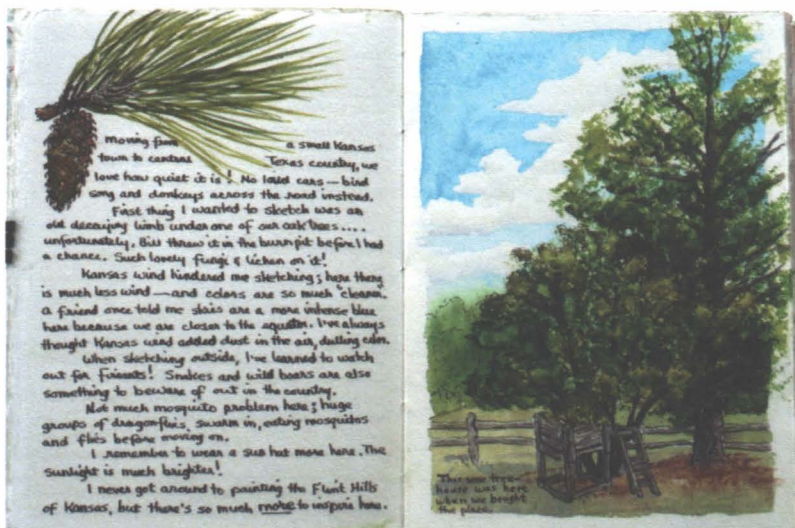 Moving from a small Kansas
town to central Texas country, we
love how quiet it is! No loud cars — bird
song and donkeys across the road instead.
First thing I wanted to sketch was an
old decaying limb under one of our oak trees....
unfortunately, Bill threw it in the burn pit before I had
a chance. Such lovely fungi & lichen on it!
Kansas wind hindered me sketching; here there
is much less wind — and colors are so much "cleaner."
A friend once told me skies are a more intense blue
here because we are closer to the equator. I've always
thought Kansas wind added dust in the air, dulling color.
When sketching outside, I've learned to watch
out for fireants! Snakes and wild boars are also
something to beware of out in the country.
Not much mosquito problem here; huge
groups of dragonflies swarm in, eating mosquitos
and flies before moving on.
I remember to wear a sun hat more here. The
sunlight is much brighter!
I never got around to painting the Flint Hills
of Kansas, but there's so much more to inspire here.
This wee tree-
house was here
when we bought
the place.